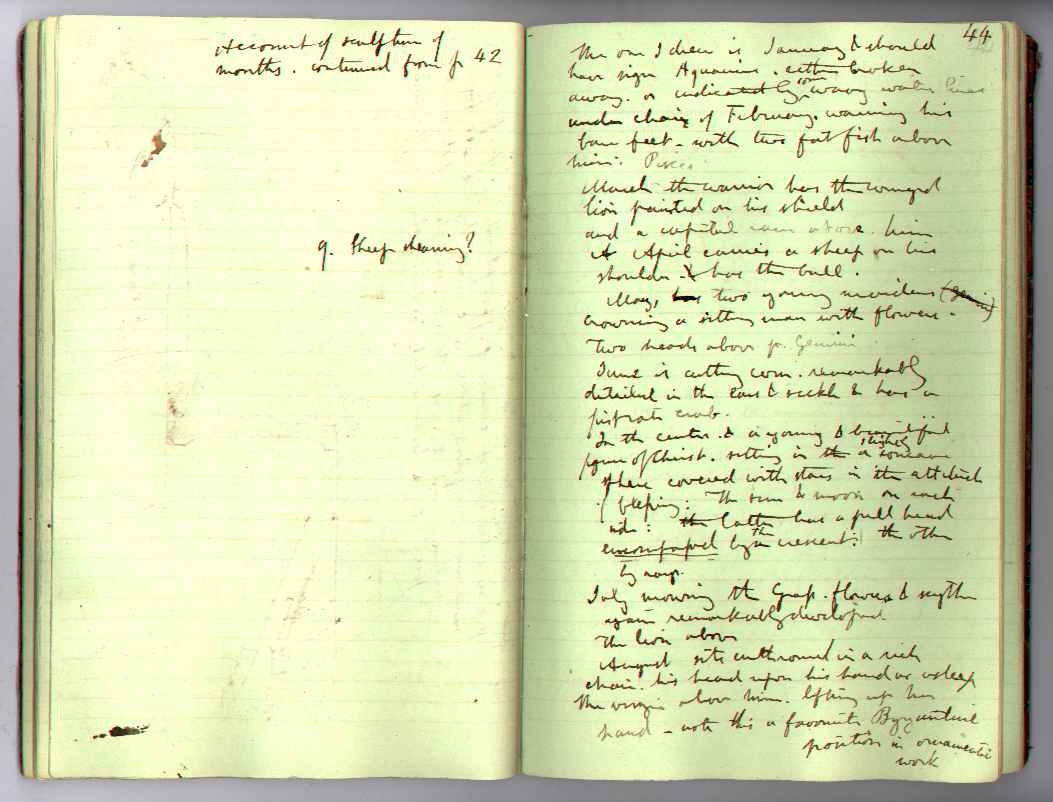 Account of sculpture of
months. continued from p. 42
q. Sheep shearing?
44
The one I drew is January & should
have sign Aquarius. either broken
away. or indicated by some wavy water lines
under chair of February. warming his
bare feet - with two fat fish above
him. Pisces
March the warrior has the winged
lion painted on his shield
and a capital ram above him
A April carries a sheep on his
shoulder & has the bull.
May, has two young maidens (Gemini)
crowning a sitting man with flowers -
Two heads above for Gemini
June is cutting corn. remarkably
detailed in the ears & sickle & has a
first rate crab.
In the center. & a young & beautiful
figure of Christ. sitting in the a slightly concave
sphere covered with stars in the attitude
of blessing. The sun & moon on each
side: the latter has a full head
encompassed by the crescent: the other
by rays.
July mowing the Grass. flowers & scythe
again remarkably developed.
The lion above
August sits enthroned in a rich
chair. his head upon his hand as asleep
The virgin above him. lifting up her
hand - note this a favourite Byzantine
position in ornamental
work